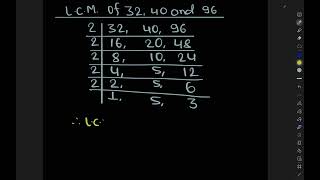 L.C.M. of 32, 40 and 96
2 | 32, 40, 96
2 | 16, 20, 48
2 | 8, 10, 24
2 | 4, 5, 12
2 | 2, 5, 6
1, 5, 3
∴ L.C.